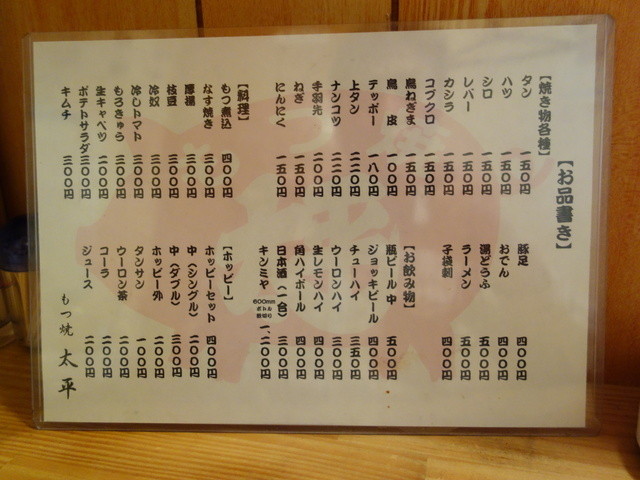 【お品書き】
【焼き物各種】
タン 一五〇円
ハツ 一五〇円
シロ 一五〇円
レバー 一五〇円
カシラ 一五〇円
コブクロ 一五〇円
鳥ねぎま 一五〇円
鳥皮 一〇〇円
テッポー 一八〇円
上タン 二二〇円
ナンコツ 二二〇円
手羽先 二〇〇円
ねぎ 一五〇円
にんにく 一五〇円
【料理】
もつ煮込 四〇〇円
なす焼き 三〇〇円
厚揚 三〇〇円
枝豆 三〇〇円
冷奴 三〇〇円
冷しトマト 三〇〇円
もろきゅう 三〇〇円
生キャベツ 二〇〇円
ポテトサラダ 三〇〇円
キムチ 三〇〇円
豚足 四〇〇円
おでん 四〇〇円
湯どうふ 五〇〇円
ラーメン 五〇〇円
子袋刺 四〇〇円
【お飲み物】
瓶ビール 中 五〇〇円
ジョッキビール 四〇〇円
チューハイ 三五〇円
ウーロンハイ 三〇〇円
生レモンハイ 四〇〇円
角ハイボール 四〇〇円
日本酒(一合) 三〇〇円
キンミヤ 600mm ボトル 一、二〇〇円
【ホッピー】
ホッピーセット 四〇〇円
中(シングル) 二〇〇円
中(ダブル) 三〇〇円
ホッピー外 二〇〇円
タンサン 一〇〇円
ウーロン茶 二〇〇円
コーラ 二〇〇円
ジュース 二〇〇円
もつ焼 太平